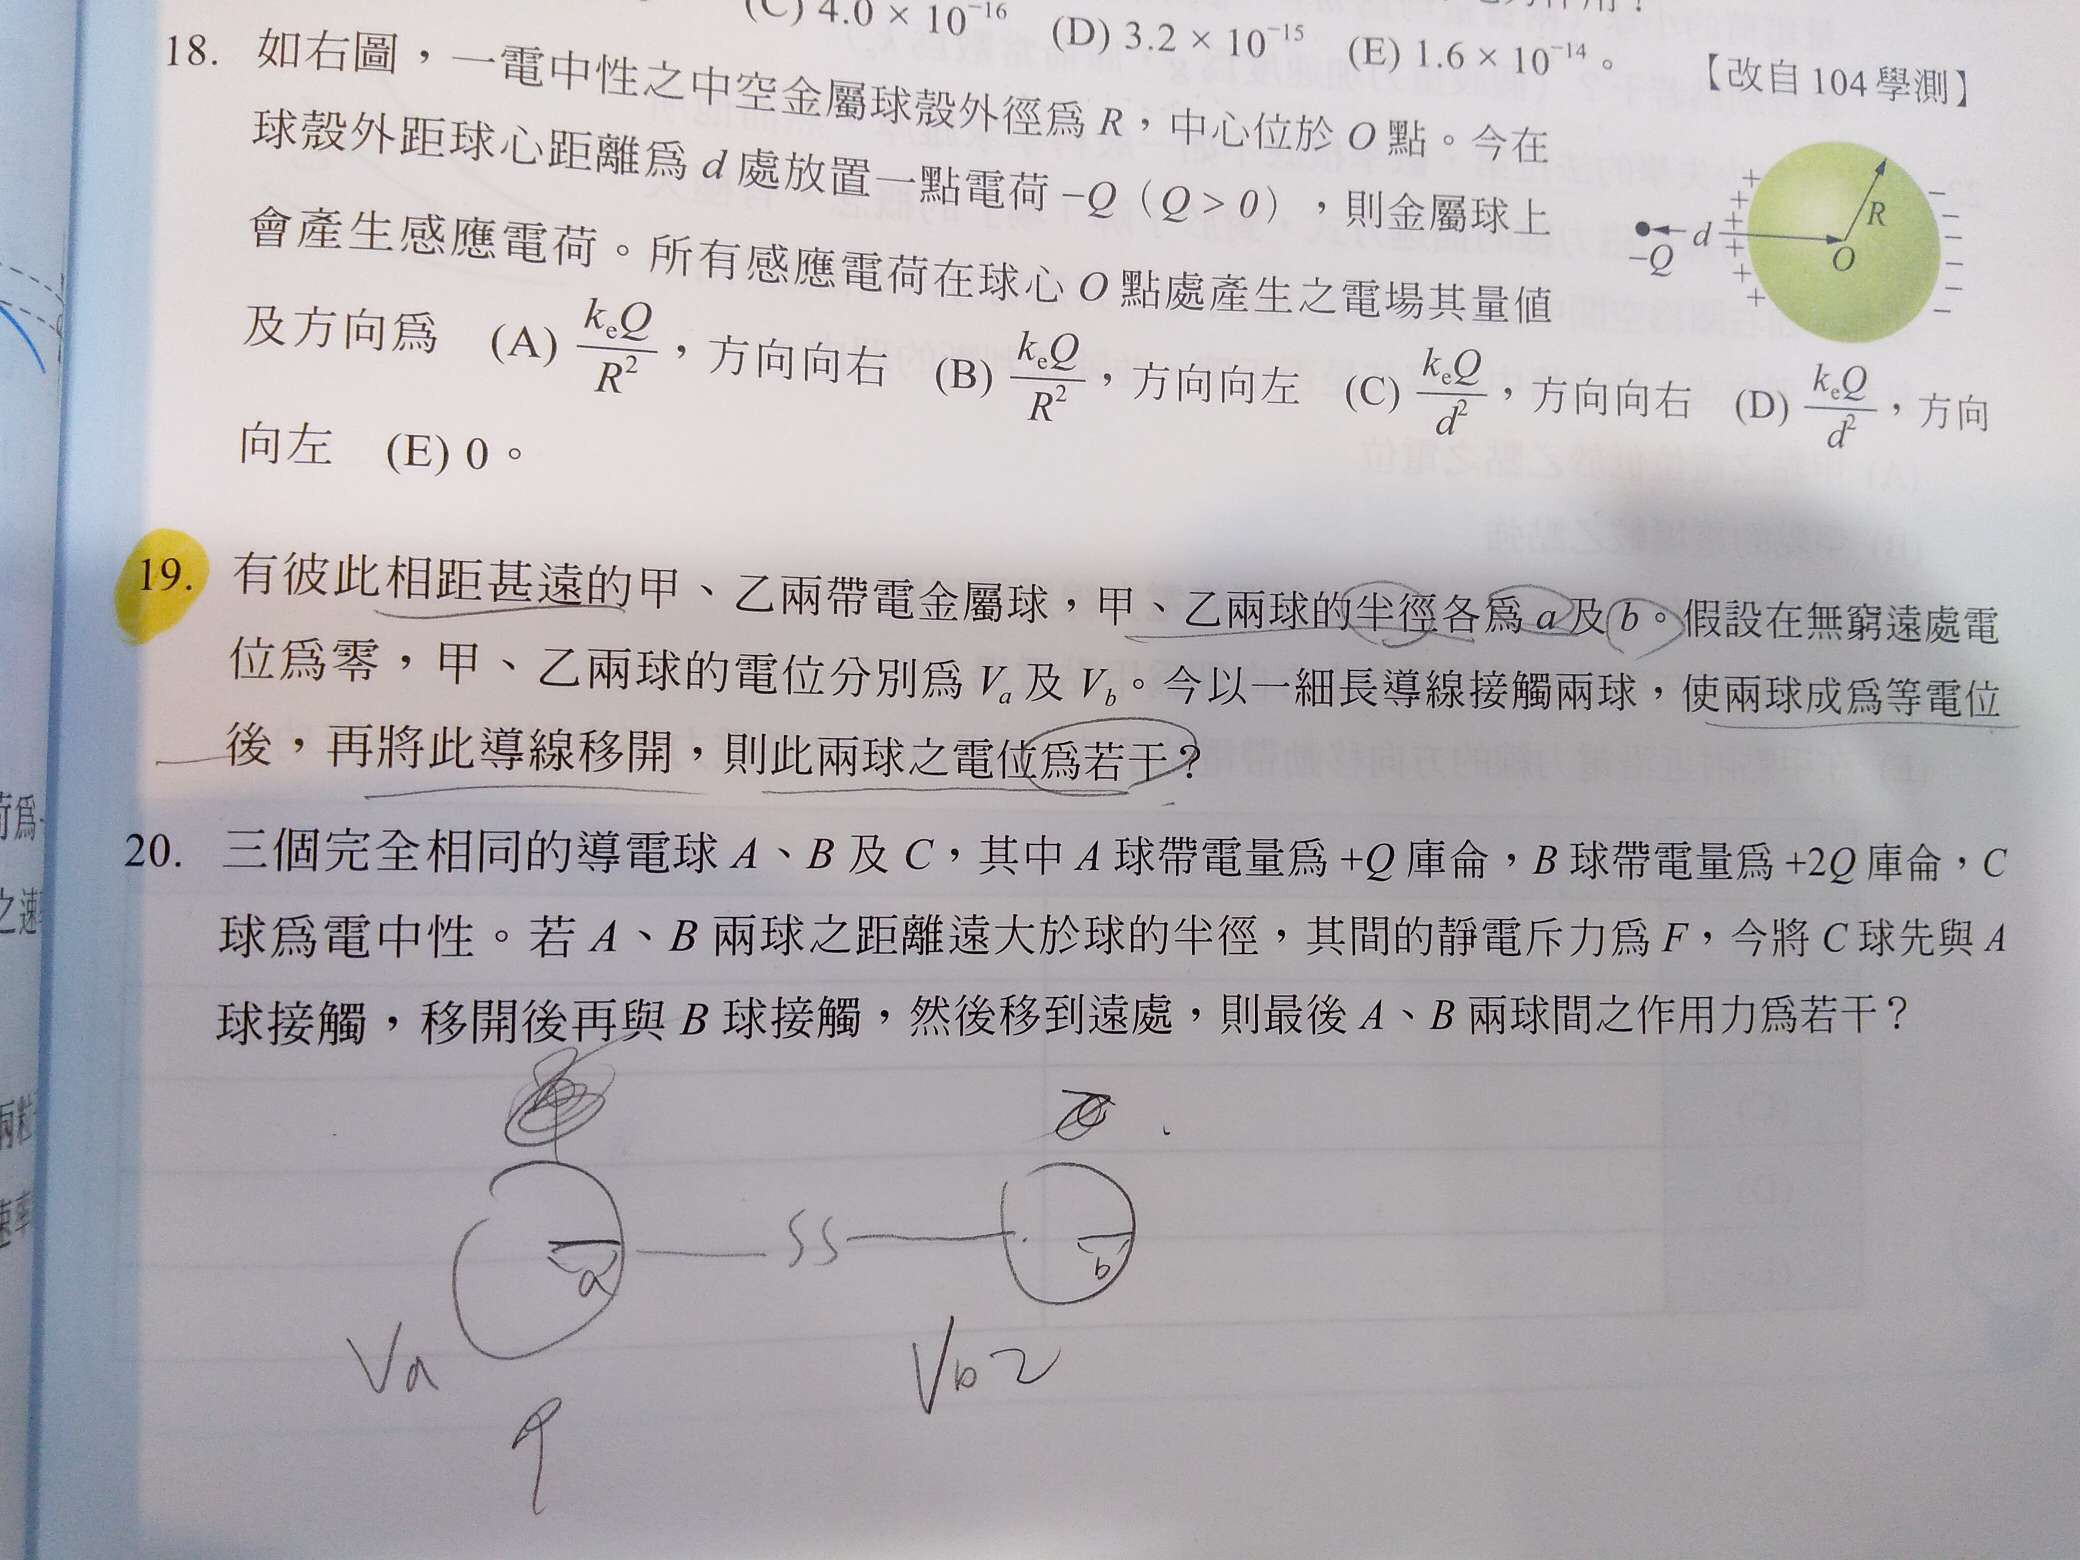 (C) 4.0 × 10⁻¹⁶ (D) 3.2 × 10⁻¹⁵ (E) 1.6 × 10⁻¹⁴。
18. 如右圖，一電中性之中空金屬球殼外徑為 R，中心位於 O 點。今在 【改自 104 學測】
球殼外距球心距離為 d 處放置一點電荷 −Q（Q > 0），則金屬球上
會產生感應電荷。所有感應電荷在球心 O 點處產生之電場其量值
及方向為 (A) kₑQ/R²，方向向右 (B) kₑQ/R²，方向向左 (C) kₑQ/d²，方向向右 (D) kₑQ/d²，方向
向左 (E) 0。
+ + + + + +
− − − − − −
R
d
O
−Q
19. 有彼此相距甚遠的甲、乙兩帶電金屬球，甲、乙兩球的半徑各為 a 及 b。假設在無窮遠處電
位為零，甲、乙兩球的電位分別為 Vₐ 及 V_b。今以一細長導線接觸兩球，使兩球成為等電位
後，再將此導線移開，則此兩球之電位為若干？
20. 三個完全相同的導電球 A、B 及 C，其中 A 球帶電量為 +Q 庫侖，B 球帶電量為 +2Q 庫侖，C
球為電中性。若 A、B 兩球之距離遠大於球的半徑，其間的靜電斥力為 F，今將 C 球先與 A
球接觸，移開後再與 B 球接觸，然後移到遠處，則最後 A、B 兩球間之作用力為若干？
a
b
Va
Vb
q